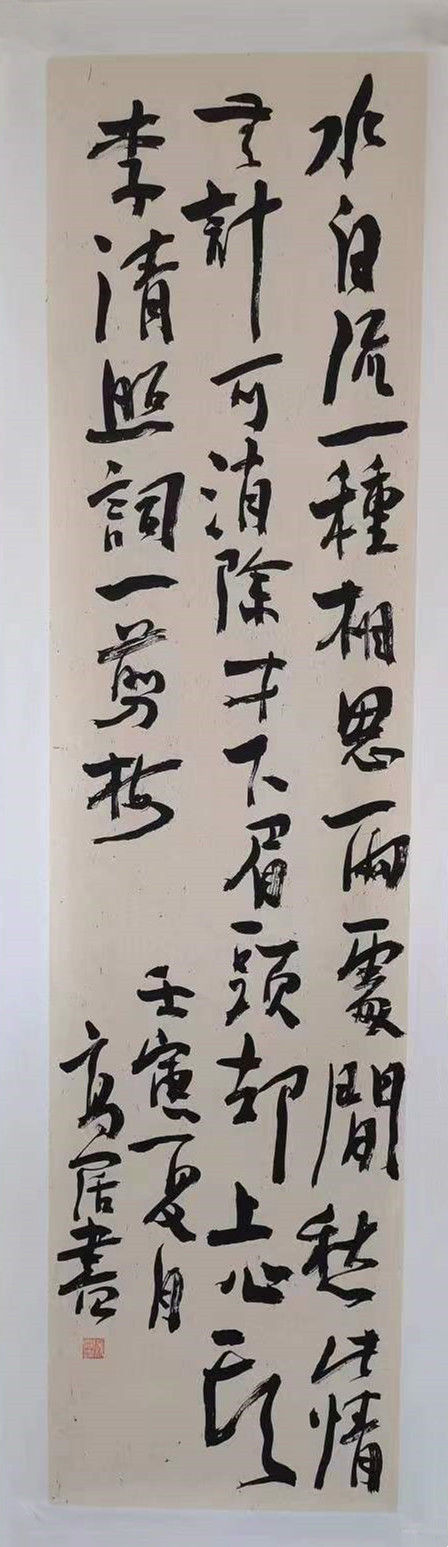 水自流一種相思兩處間愁此情
無計可消除才下眉頭却上心頭
李清照詞一剪梅
壬寅夏月
高居書